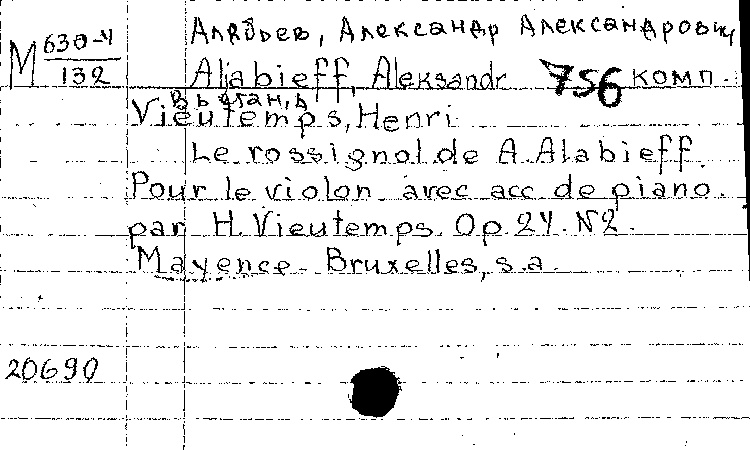 Алябьев, Александр Александрович
М 630-4/132
Aljabieff, Aleksandr 756 комп.
Вьетан, А
Vieutemps, Henri
Le rossignol de A. Alabieff.
Pour le violon avec acc de piano.
par H. Vieutemps. Op. 24. N2.
Mayence - Bruxelles, s.a.
20690